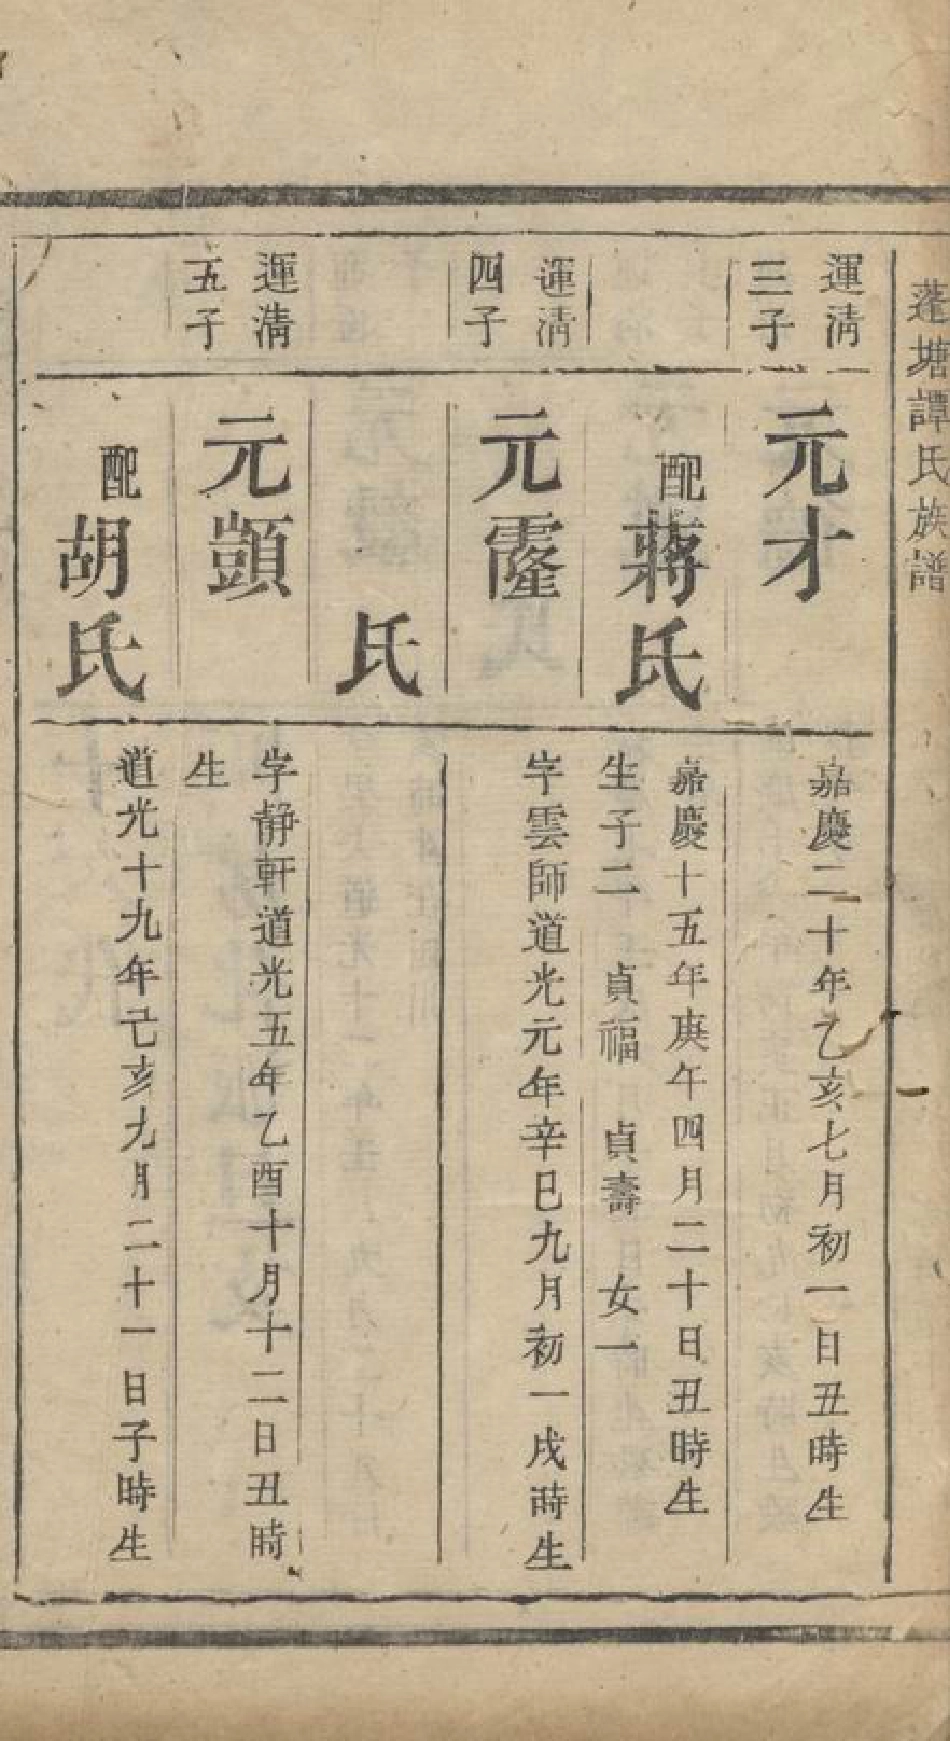 蓬塘譚氏族譜
運清
三子
元才
嘉慶二十年乙亥七月初一日丑時生
配蔣氏
嘉慶十五年庚午四月二十日丑時生
生子二 貞福 貞壽 女一
運清
四子
元霳
字雲師道光元年辛巳九月初一戌時生
氏
運清
五子
元顗
字靜軒道光五年乙酉十月十二日丑時
生
配胡氏
道光十九年己亥九月二十一日子時生